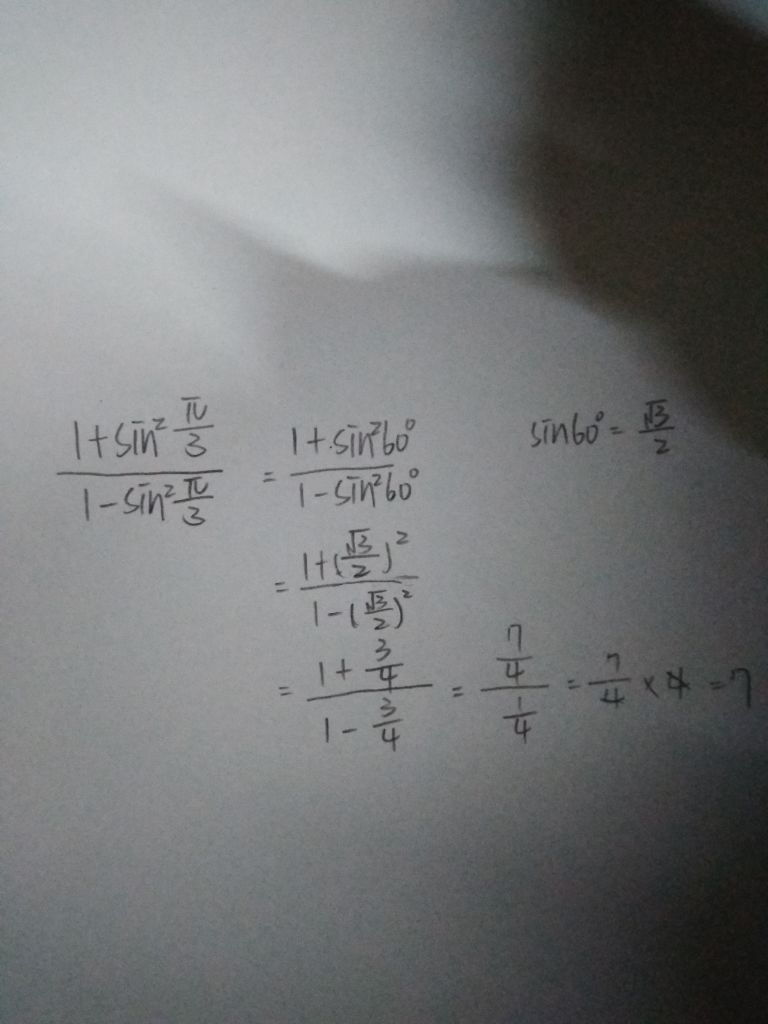 (1+sin²π/3)/(1-sin²π/3) = (1+sin²60°)/(1-sin²60°) sin60°=√3/2
= (1+(√3/2)²)/(1-(√3/2)²)
= (1+3/4)/(1-3/4) = (7/4)/(1/4) = 7/4×4=7